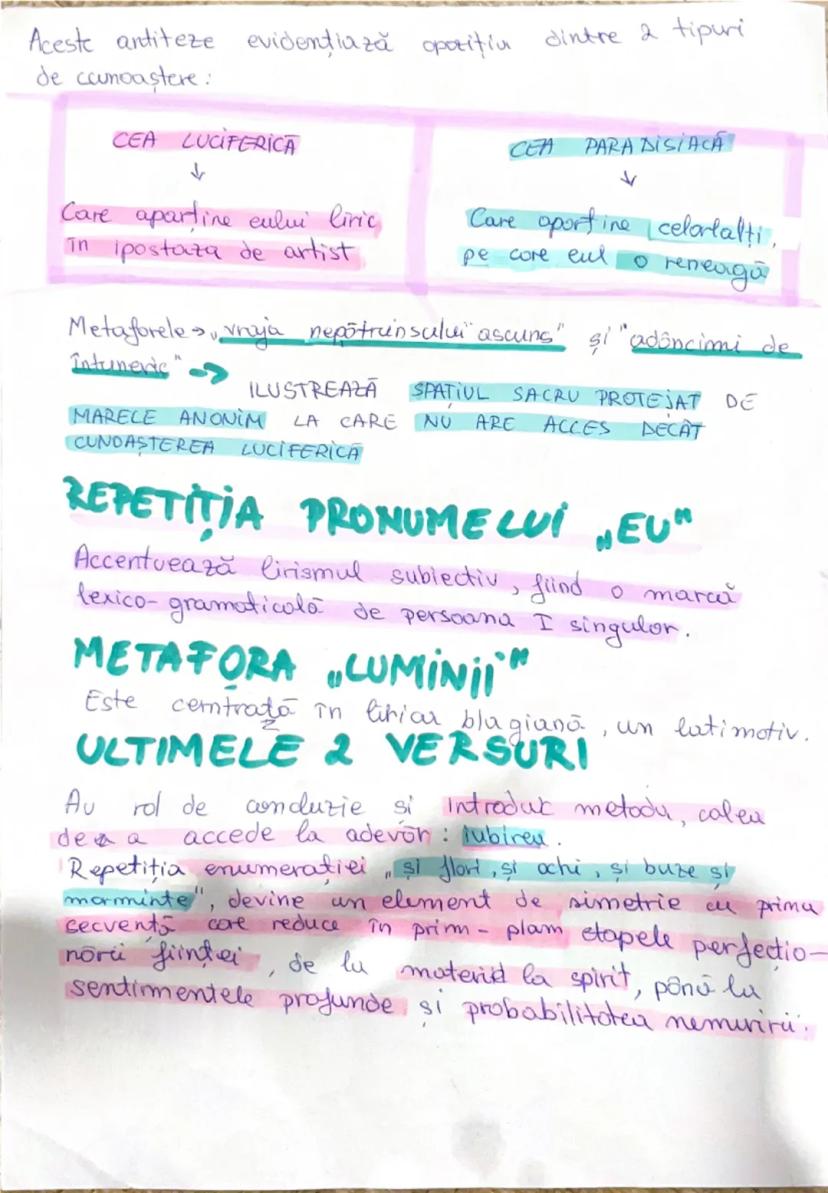 Aceste antiteze evidențiază opoziția dintre 2 tipuri
de cunoaștere:
CEA LUCIFERICĂ
↓
Care aparține eului liric
în ipostaza de artist
CEA PARADISIACĂ
↓
Care aparține celorlalți,
pe care eul o reneagă
Metaforele → „vraja nepătrunsului ascuns" și "adâncimi de
întuneric" →
ILUSTREAZĂ SPAȚIUL SACRU PROTEJAT DE
MARELE ANONIM LA CARE NU ARE ACCES DECÂT
CUNOAȘTEREA LUCIFERICĂ
REPETIȚIA PRONUMELUI „EU"
Accentuează lirismul subiectiv, fiind o marcă
lexico-gramaticală de persoana I singular.
METAFORA „LUMINII"
Este centrată în liria blagiană, un latimotiv.
ULTIMELE 2 VERSURI
Au rol de concluzie si introduc metoda, calea
de a accede la adevăr: iubirea.
Repetiția enumerației „și flori, și ochi, și buze și
morminte", devine un element de simetrie cu prima
secvență care reduce în prim-plam etapele perfecțio-
nării ființei, de la material la spirit, până la
sentimentele profunde și probabilitatea nemuririi.